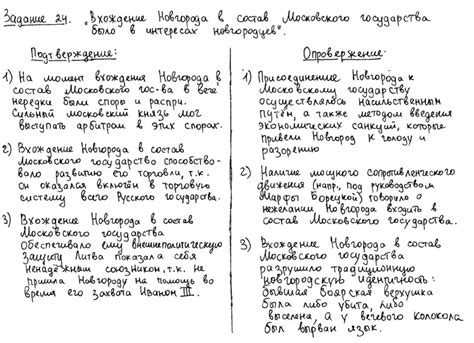 Задание 24. "Вхождение Новгорода в состав Московского государства
было в интересах новгородцев".
Подтверждение:
1) На момент вхождения Новгорода в
состав Московского гос-ва в вече
нередки были споры и распри.
Сильный московский князь мог
выступать арбитром в этих спорах.
2) Вхождение Новгорода в состав
Московского государство способство-
вало развитию его торговли, т.к.
он оказался включён в торговую
систему всего Русского государства.
3) Вхождение Новгорода в состав
Московского государства
Обеспечивало ему внешнеполитическую
защиту Литва показала себя
ненадёжным союзником, т.к. не
пришла Новгороду на помощь во
время его захвата Иваном III.
Опровержение:
1) Присоединение Новгорода к
Московскому государству
осуществлялось насильственным
путём, а также методом введения
экономических санкций, которые
привели Новгород к голоду и
разорению
2) Наличие мощного сопротивленческого
движения (напр., под руководством
Марфы Борецкой) говорило о
нежелании Новгорода входить в
состав Московского государства.
3) Вхождение Новгорода в состав
Московского государства
разрушило традиционную
новгородскую идентичность:
бывшая боярская верхушка
была либо убита, либо
выселена, а у вечевого колокола
был вырван язык.